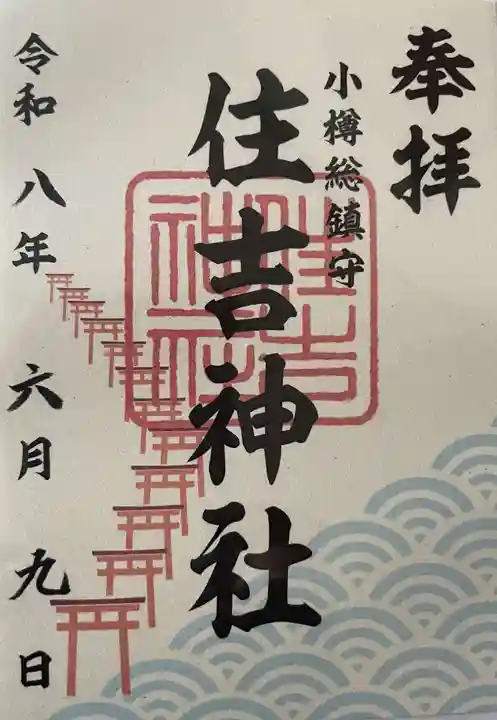 奉拝
小樽総鎮守
住吉神社
住吉神社
令和八年六月九日